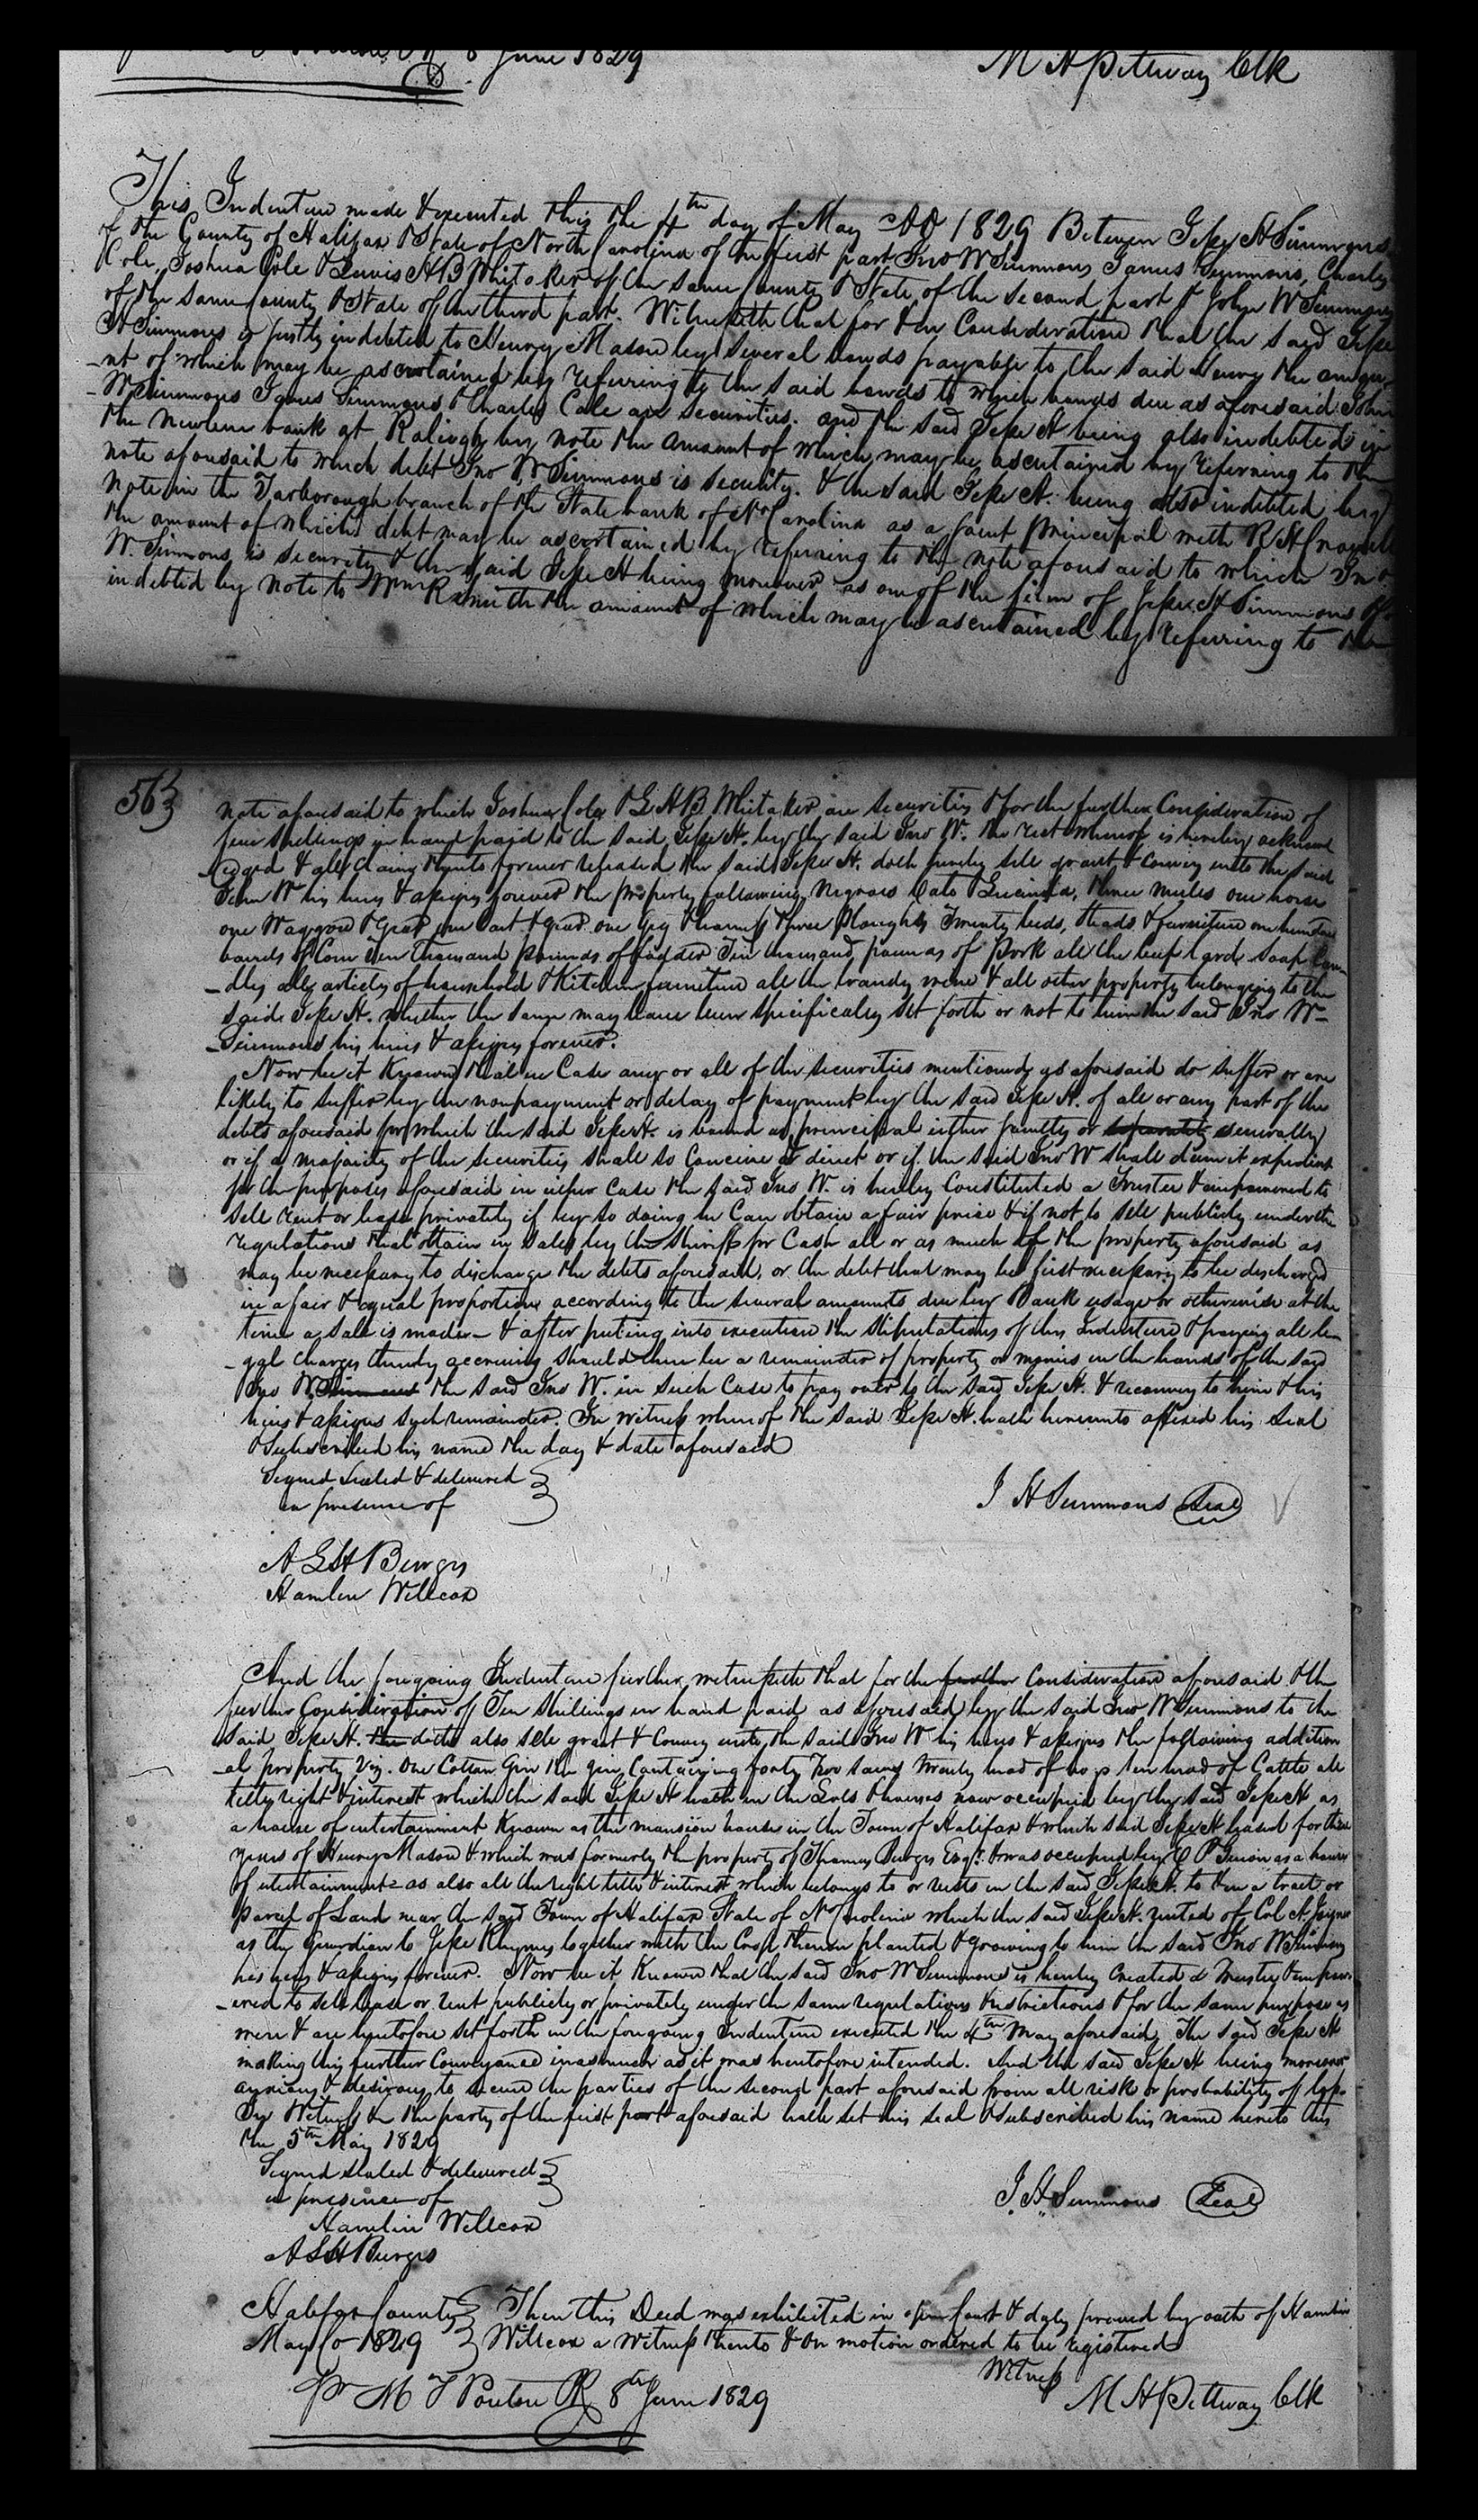 8 June 1829
M H Pittway Clk
This Indenture made & executed this the 4th day of May AD 1829 Between Jesse H Simmons
of the County of Halifax & State of North Carolina of the first part Jno W Simmons James Simmons, Charles
Cole, Joshua Cole & Lewis H B Whitaker of the same County & State of the second part & John W Simmons
of the same County & State of the third part. Witnesseth that for & in Consideration that the said Jesse
H Simmons is justly indebted to Henry Mason by several bonds payable to the said Henry the amou-
-nt of which may be ascertained by referring to the said bonds to which bonds due as aforesaid John
W Simmons James Simmons & Charles Cole are securities. and the said Jesse H being also indebted in
the Newbern bank at Raliegh by note the amount of which may be ascertained by referring to the
note aforesaid to which debt Jno W Simmons is security. & the said Jesse H. being also indebted by
note in the Tarborough branch of the State bank of No Carolina as a joint principal with R H
the amount of which debt may be ascertained by referring to the note aforesaid to which Jno
W. Simmons is security & the said Jesse H being moreover as one of the firm of Jesse H Simmons &
indebted by note to Wm R Smith the amount of which may be ascertained by referring to the
563
note aforesaid to which Joshua Cole & L H B Whitaker are securities & for the further Consideration of
five shillings in hand paid to the said Jesse H. by the said Jno W. the rect whereof is hereby acknowl
edged & all claims thereto forever released the said Jesse H. doth hereby sell grant & convey unto the said
John W his heirs & assigns forever the property following Negroes Cato & Lucinda, three mules one horse
one Waggon & Gear one Cart & gear one Gig & harness three Ploughs Twenty beds, steads & furniture one hundred
barrels of Corn Ten Thousand Pounds of fodder Ten thousand pounds of Pork all the beef lard soap Can-
-dles all articles of household & Kitchen furniture all the brandy wine & all other property belonging to the
said Jesse H. whether the same may have been specifically set forth or not to him the said Jno W-
-Simmons his heirs & assigns forever.
Now be it Known that in Case any or all of the securities mentioned as aforesaid do suffer or are
likely to suffer by the nonpayment or delay of payment by the said Jesse H. of all or any part of the
debts aforesaid for which the said Jesse H. is bound as principal either jointly or separately severally
or if a majority of the securities shall so Conceive & direct or if the said Jno W shall deem it expedient
for the purposes aforesaid in either Case the said Jno W. is hereby Constituted a Trustee & empowered to
sell rent or lease privately if by so doing he Can obtain a fair price & if not to sell publicly under the
regulations that obtain in sales by the Sheriff for Cash all or as much of the property aforesaid as
may be necessary to discharge the debts aforesaid, or the debt that may be first necessary to be discharged
in a fair & equal proportion according to the several amounts due by Bank usage or otherwise at the
time a sale is made - & after puting into execution the stipulations of this Indenture & paying all le-
-gal charges thereby accruing should there be a remainder of property or monies in the hands of the said
Jno W Simmons the said Jno W. in such Case to pay over to the said Jesse H. & reconvey to him & his
heirs & assigns such remainder. In witness whereof the said Jesse H. hath hereunto affixed his Seal
& subscribed his name the day & date aforesaid
Signed Sealed & delivered
in presence of
J H Simmons Seal
A L H Burges
Hamlin Willcox
And the foregoing Indenture further witnesseth that for the further Consideration aforesaid & the
further Consideration of Ten Shillings in hand paid as aforesaid by the said Jno W Simmons to the
said Jesse H. the doth also sell grant & Convey unto the said Jno W his heirs & assigns the following addition
-al property Viz. One Cotton Gin the Gin Containing forty Two saws Twenty head of hogs ten head of Cattle all
title right & interest which the said Jesse H hath in the Lots & houses now occupied by the said Jesse H as
a house of entertainment Known as the mansion house in the Town of Halifax & which said Jesse H leased for three
years of Henry Mason & which was formerly the property of Thomas Burges Esqr. & was occupied by P Simon as a house
of entertainment as also all the right title & interest which belongs to or rests in the said Jesse H. to & in a tract or
parcel of Land near the said Town of Halifax State of No Carolina which the said Jesse H. rented of Col A Joiner
as the Guardian to Jesse Rhymes together with the Crop thereon planted & growing to him the said Jno W Simmons
his heirs & assigns forever. Now be it Known that the said Jno W Simmons is hereby Created a Trustee & empow-
-ered to sell lease or rent publicly or privately under the same regulations & restrictions & for the same purpose as
were & are heretofore set forth in the foregoing Indenture executed the 4th May aforesaid, The said Jesse H
making this further Conveyance inasmuch as it was heretofore intended. And the said Jesse H being moreover
anxious & desirous to secure the parties of the second part aforesaid from all risk or probability of loss.
In Witness &c the party of the first part aforesaid hath set his seal & subscribed his name hereto this
the 5th May 1829
Signed sealed & delivered
in presence of
J. H. Simmons Seal
Hamlin Willcox
A L H Burges
Halifax County Then this Deed was exhibited in open Court & duly proved by oath of Hamlin
May Co 1829 Willcox a Witness thereto & on motion ordered to be registered
Witness
M H Pittway Clk
Pr M T Ponton PR 8th June 1829